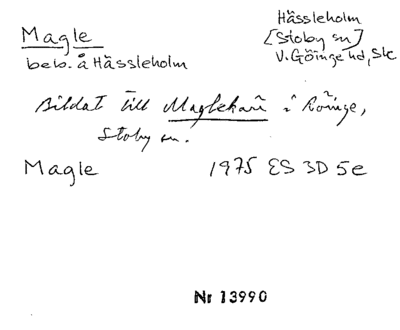 Magle
beb. å Hässleholm
Hässleholm
[Stoby sn]
V. Göinge hd, Sk
Bildat till Maglekärr i Röinge,
Stoby sn.
Magle 1975 ES 3D 5e
Nr 13990